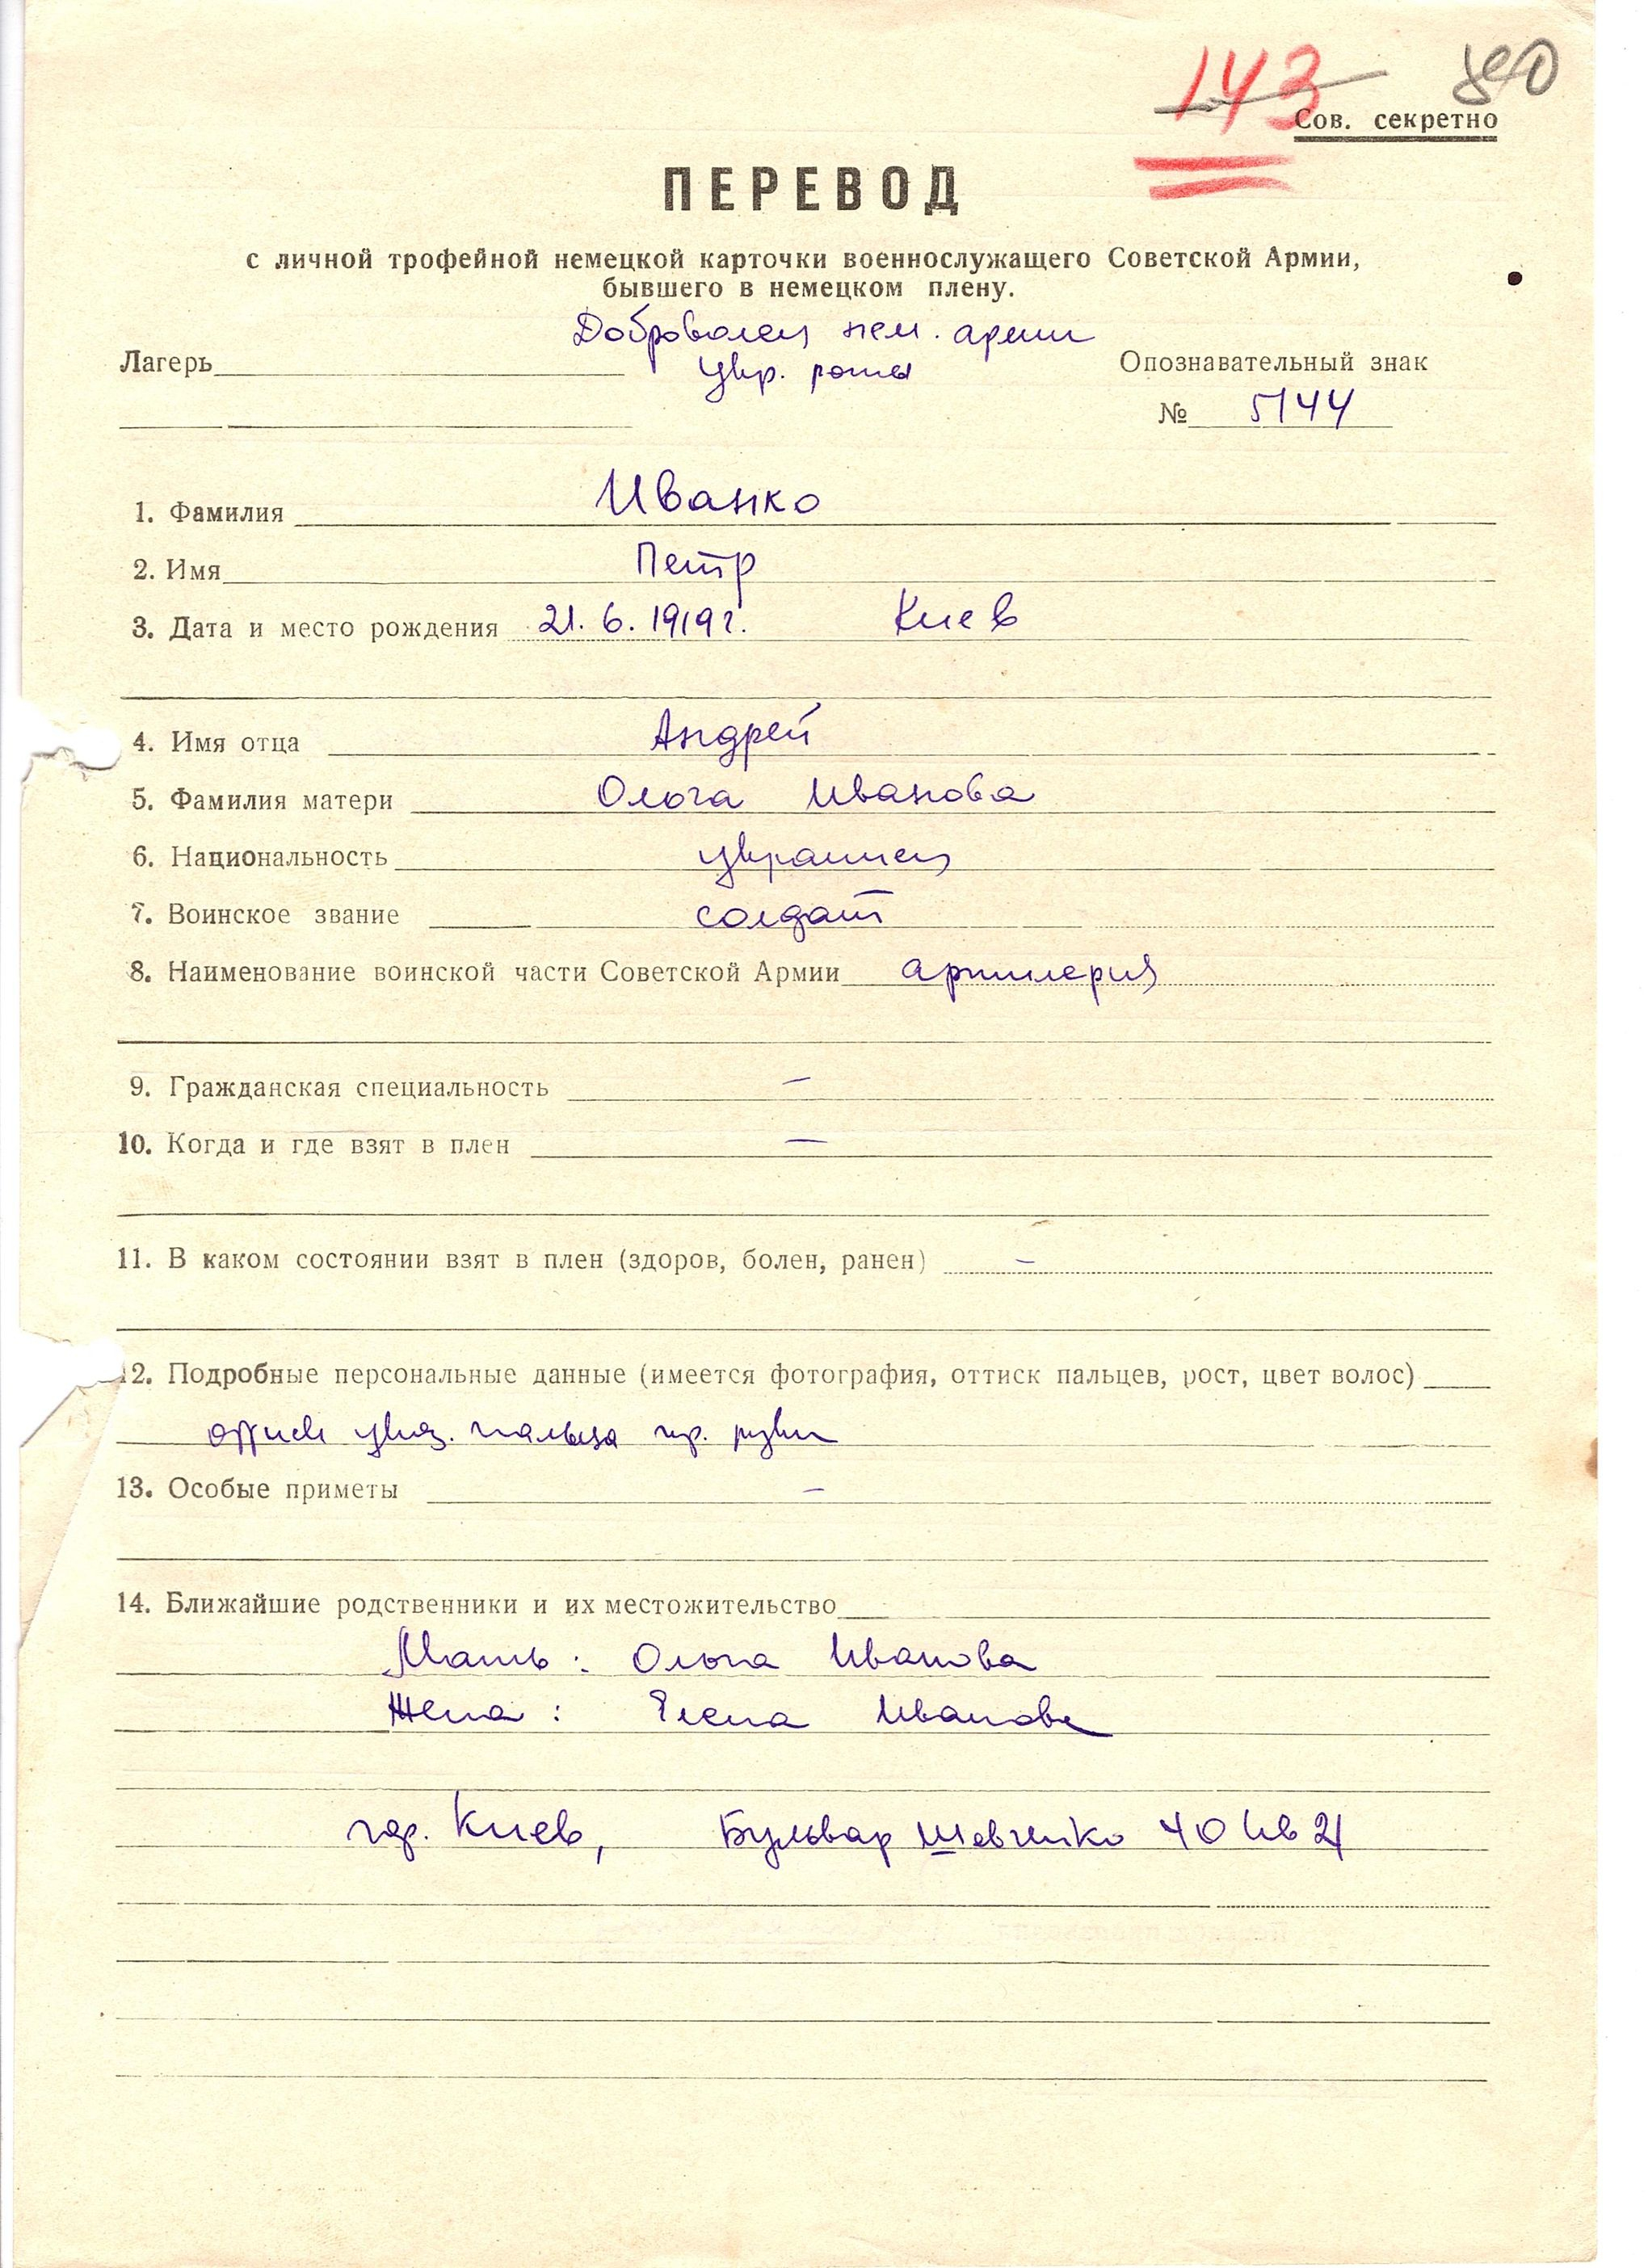 143
Сов. секретно
ПЕРЕВОД
с личной трофейной немецкой карточки военнослужащего Советской Армии,
бывшего в немецком плену.
Доброволец нем. армии
Лагерь
укр. роты
Опознавательный знак
№ 5144
1. Фамилия Иванко
2. Имя Петр
3. Дата и место рождения 21.6.1919г. Киев
4. Имя отца Андрей
5. Фамилия матери Ольга Иванова
6. Национальность украинец
7. Воинское звание солдат
8. Наименование воинской части Советской Армии артиллерия
9. Гражданская специальность –
10. Когда и где взят в плен –
11. В каком состоянии взят в плен (здоров, болен, ранен) –
12. Подробные персональные данные (имеется фотография, оттиск пальцев, рост, цвет волос)
оттиск указ. пальца пр. руки
13. Особые приметы –
14. Ближайшие родственники и их местожительство
Мать: Ольга Иванова
Жена: Елена Иванова
гор. Киев, Бульвар Шевченко 40 кв 21